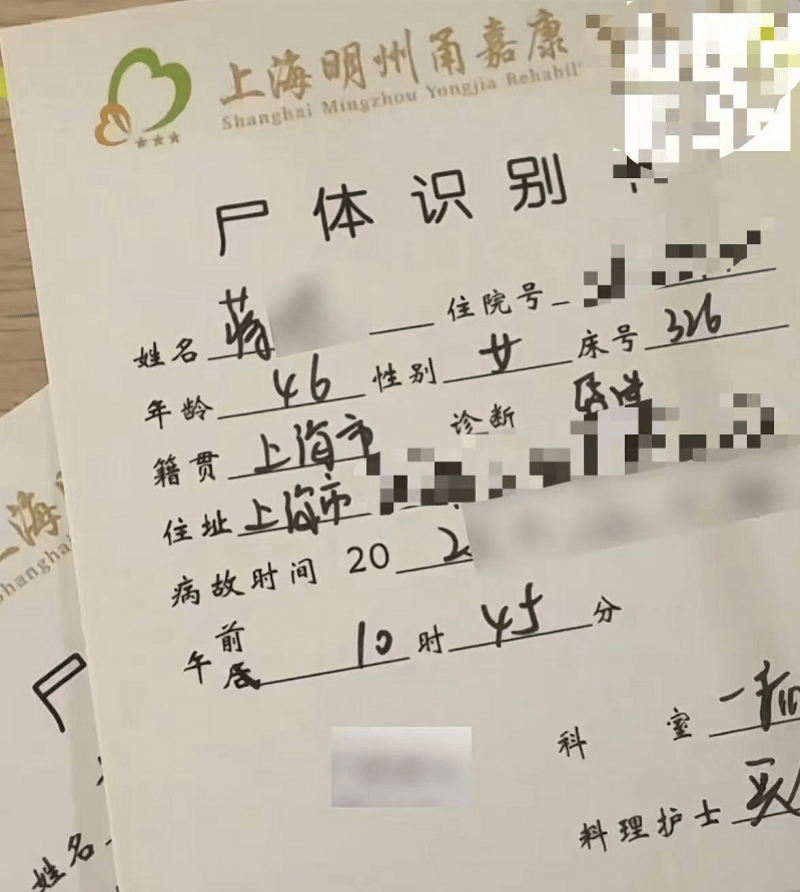 上海明州甬嘉康
Shanghai Mingzhou Yongjia Rehabil
尸体识别
姓名 蒋 住院号
年龄 46 性别 女 床号 326
籍贯 上海市 诊断
住址 上海市
病故时间 20 2
午 前 后 10 时 45 分
科室 一
料理护士
上海
Shangha
尸
姓名